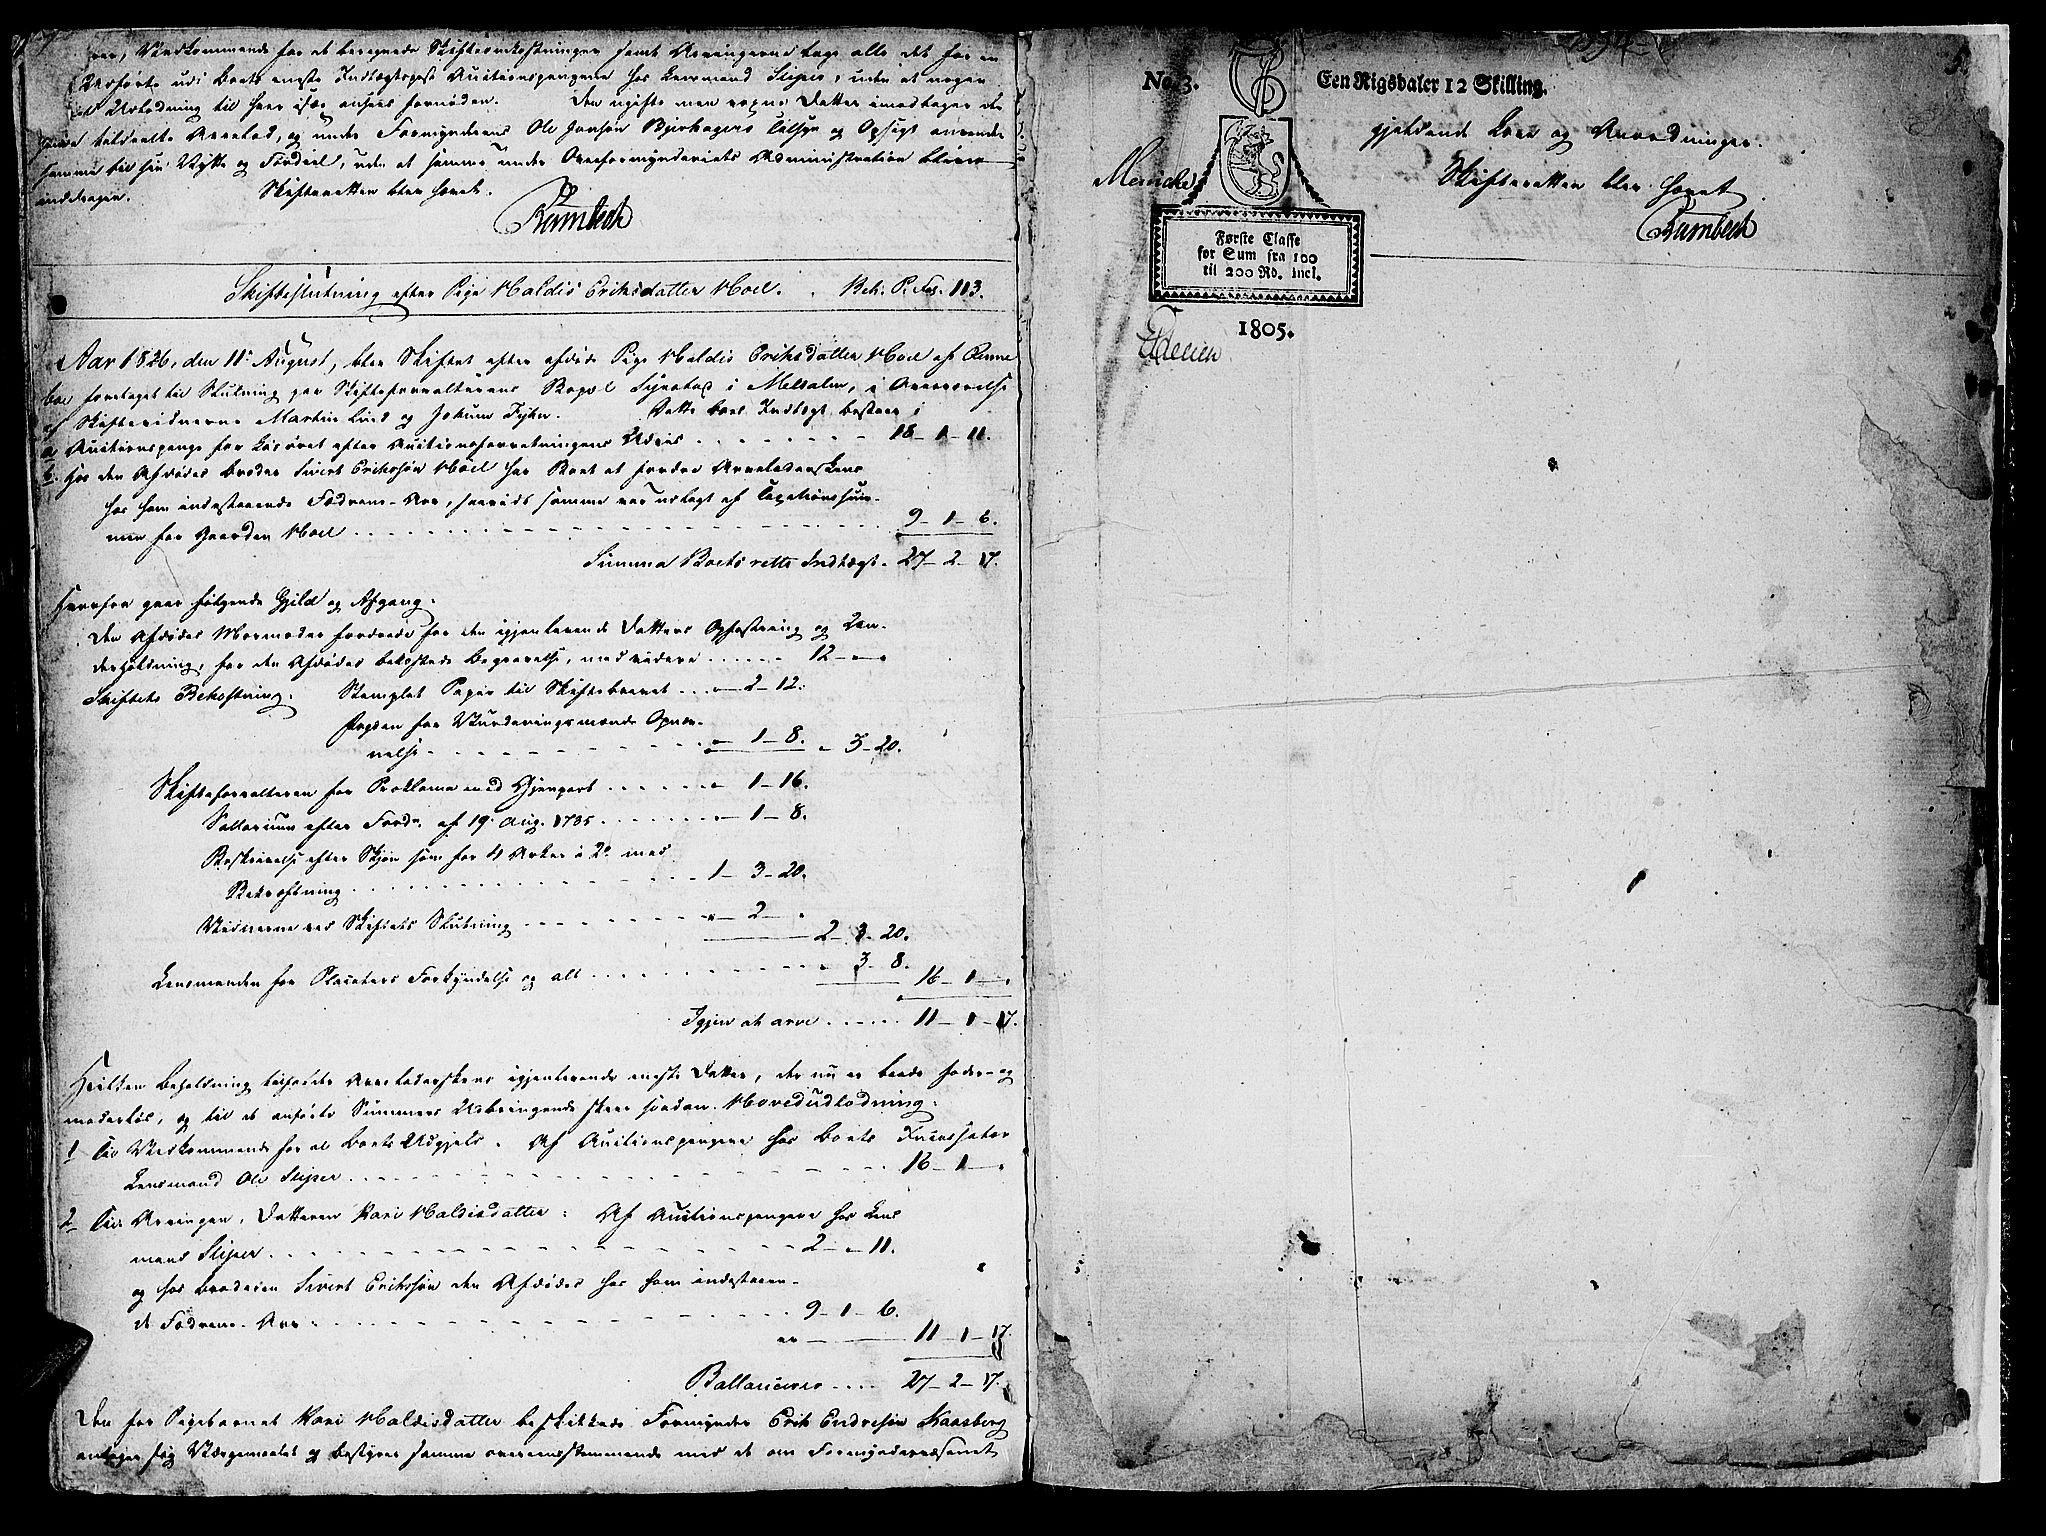 Vedkommende for de beregnede Skifteomkostninger samt Arvingerne tage alle det for en
udi Boets eneste Indtægtspost Auctionspengene hos Lensmand Sliper, uden at nogen
Udlodning til hver især ansees fornøden. Den ugifte men voxne Datter imodtager den
hende tildeelte Arvelod, og under Formynderens Ole Jonsøn Bjerkagers Tilsyn og Opsigt anvende
samme til sin Nytte og Fordeel, uden at samme under Overformynderiets Administration bliver
inddragen. Skifteretten blev hævet.
Rambech
Skifteslutning efter Pige Maldis Eriksdatter Moel. Beh. P. Fol. 113.
Aar 1826, den 11te August, blev Skiftet efter afdøde Pige Maldis Eriksdatter Moel af Renne
boe foretaget til Slutning paa Skifteforvalterens Bopæl i Meldalen, i Overværelse
af Skiftevidnerne Martin Lund og Johan . Dette boes Indtægt bestaaer i
a Auctionspenge for Løsøret efter Auctionsforretningens Udviis 18 - 1 - 11.
b. hos den Afdødes broder Sivert Erikssøn Moel har Boet at fordre Arveladerskens
hos ham indestaaende Fædrene-Arv, hvorvidt samme var udlagt af Taxationssum-
men for Gaarden Moel 9 - 1 - 6.
Summa Boets rette Indtægt. 27 - 2 - 17.
Herfra gaar følgende Gjæld og Afgang.
Den Afdødes Mormoder fordrede for den igjenlevende Datters Opfostring og Un-
derholdning, for den Afdødes bekostede Begravelse, med videre 12 - " - "
Skiftets Bekostning. Stemplet Papir til Skiftebrevet " - 2 - 12.
Fogden for Vurderingsmænds Opnæv-
nelse " - 1 - 8. " - 3 - 20.
Skifteforvalteren for Proklama med Gjenpart " - 1 - 16.
Sallarium efter Fordn. af 19. Aug. 1735 " - 1 - 8.
Beskrivelse efter Skjøn som for 4 Arker a 2 med
Bekræftning 1 - 3 - 20.
Vidnerne ved Skiftets Slutning " - 2 - "
2 - 3 - 20.
Lensmanden for Placaters Forkyndelse og alt " 3 - 8. 16 - 1 - "
Igjen at arve 11 - 1 - 17.
Hvilken Beholdning tilfalder Arveladerskens igjenlevende eneste Datter, der nu er baade fader- og
moderløs, og til de anførte Summers Udbringende skeer saadan Hovedudlodning.
1 Til Vedkommende for al Boets Udgjæld. Af Auctionspengene hos Boets Incassator
Lensmand Ole Sliper 16 - 1 - "
2 Til Arvingen, Datteren Kari Maldisdatter: Af Auctionspengene hos Lens
mand Sliper 2 - " - 11.
og hos Broderen Sivert Erikssøn den Afdødes hos ham indestaaen-
de Fædrene-Arv 9 - 1 - 6.
er 11 - 1 - 17.
Ballancerer 27 - 2 - 17.
Den for Pigebarnet Kari Maldisdatter beskikkede Formynder Erik Endresøn Kaasberg
antager sig Værgemaalet og bestyrer samme overensstemmende med de om Formynderværsenet
5
No. 3. Een Rigsdaler 12 Skilling.
gjeldende Love og Anordninger.
Meincke Skifteretten blev hævet
Rambech
Første Classe
for Sum fra 100
til 200 Rd. incl.
1805.